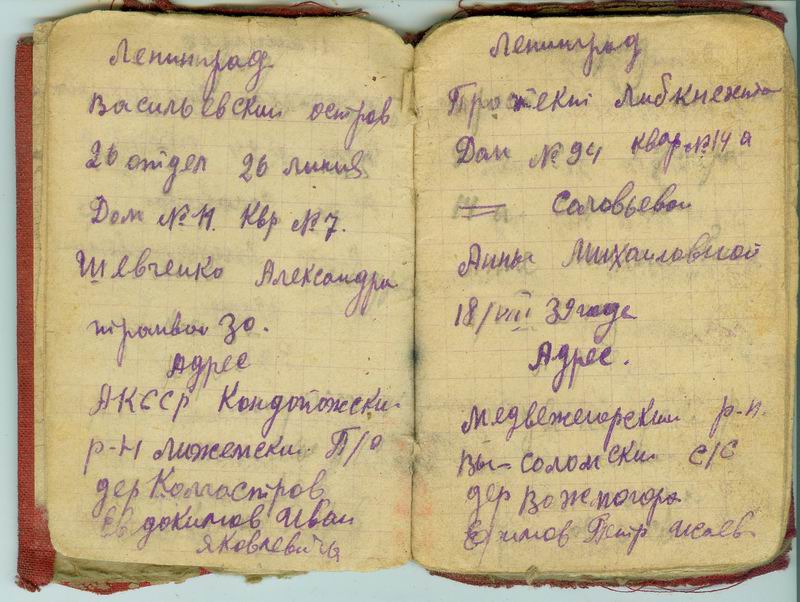 Ленинград
Васильевский остров
26 отдел 26 линия
Дом № 11. Квр № 7.
Шевченко Александра
трамвай 30.
Адрес
АКССР Кондопожски
р-н Лижемски П/о
дер Колгостров
Евдокимов Иван
Яковлевичь
Ленинград
Проспект Либкнехта
Дом № 94 квар № 14 а
Соловьевой
Анны Михайловной
18/VIII 39 года
Адрес.
Медвежегорский р-н.
Вы-соломски с/с
дер Вожмогора
Ефимов Петр Исаев